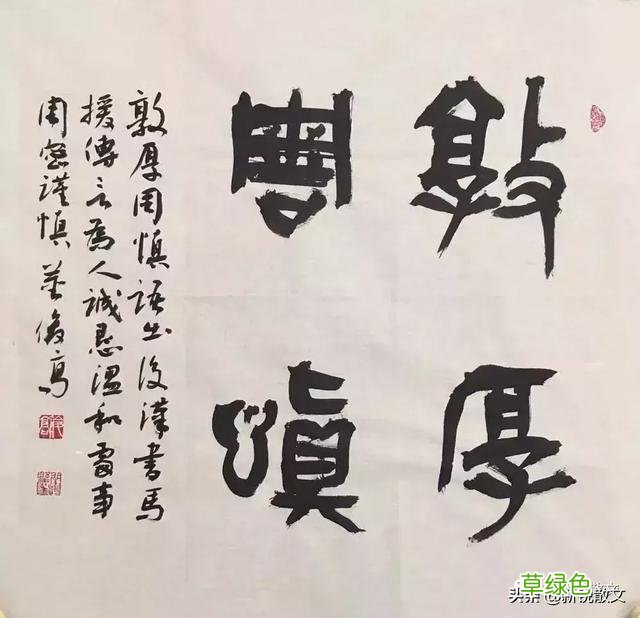 敦厚
周慎
敦厚周慎语出后汉书马
援传言为人诚恳温和处事
周密谨慎
草绿色
头条@新锐散文